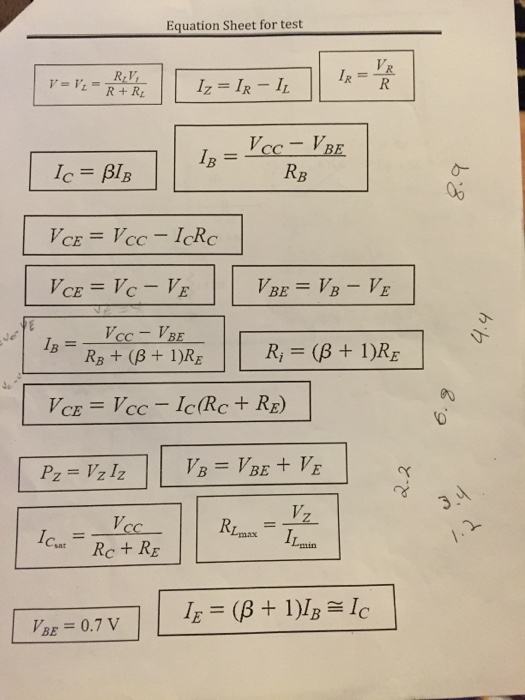 Equation Sheet for test
V = V_L = R_L V_i / (R + R_L)
I_Z = I_R − I_L
I_R = V_R / R
I_C = βI_B
I_B = (V_CC − V_BE) / R_B
8.9
V_CE = V_CC − I_C R_C
V_CE = V_C − V_E
V_BE = V_B − V_E
I_B = (V_CC − V_BE) / (R_B + (β + 1)R_E)
R_i = (β + 1)R_E
4.4
V_CE = V_CC − I_C(R_C + R_E)
6.8
P_Z = V_Z I_Z
V_B = V_BE + V_E
2.2
3.4
1.2
I_Csat = V_CC / (R_C + R_E)
R_Lmax = V_Z / I_Lmin
V_BE = 0.7 V
I_E = (β + 1)I_B ≅ I_C